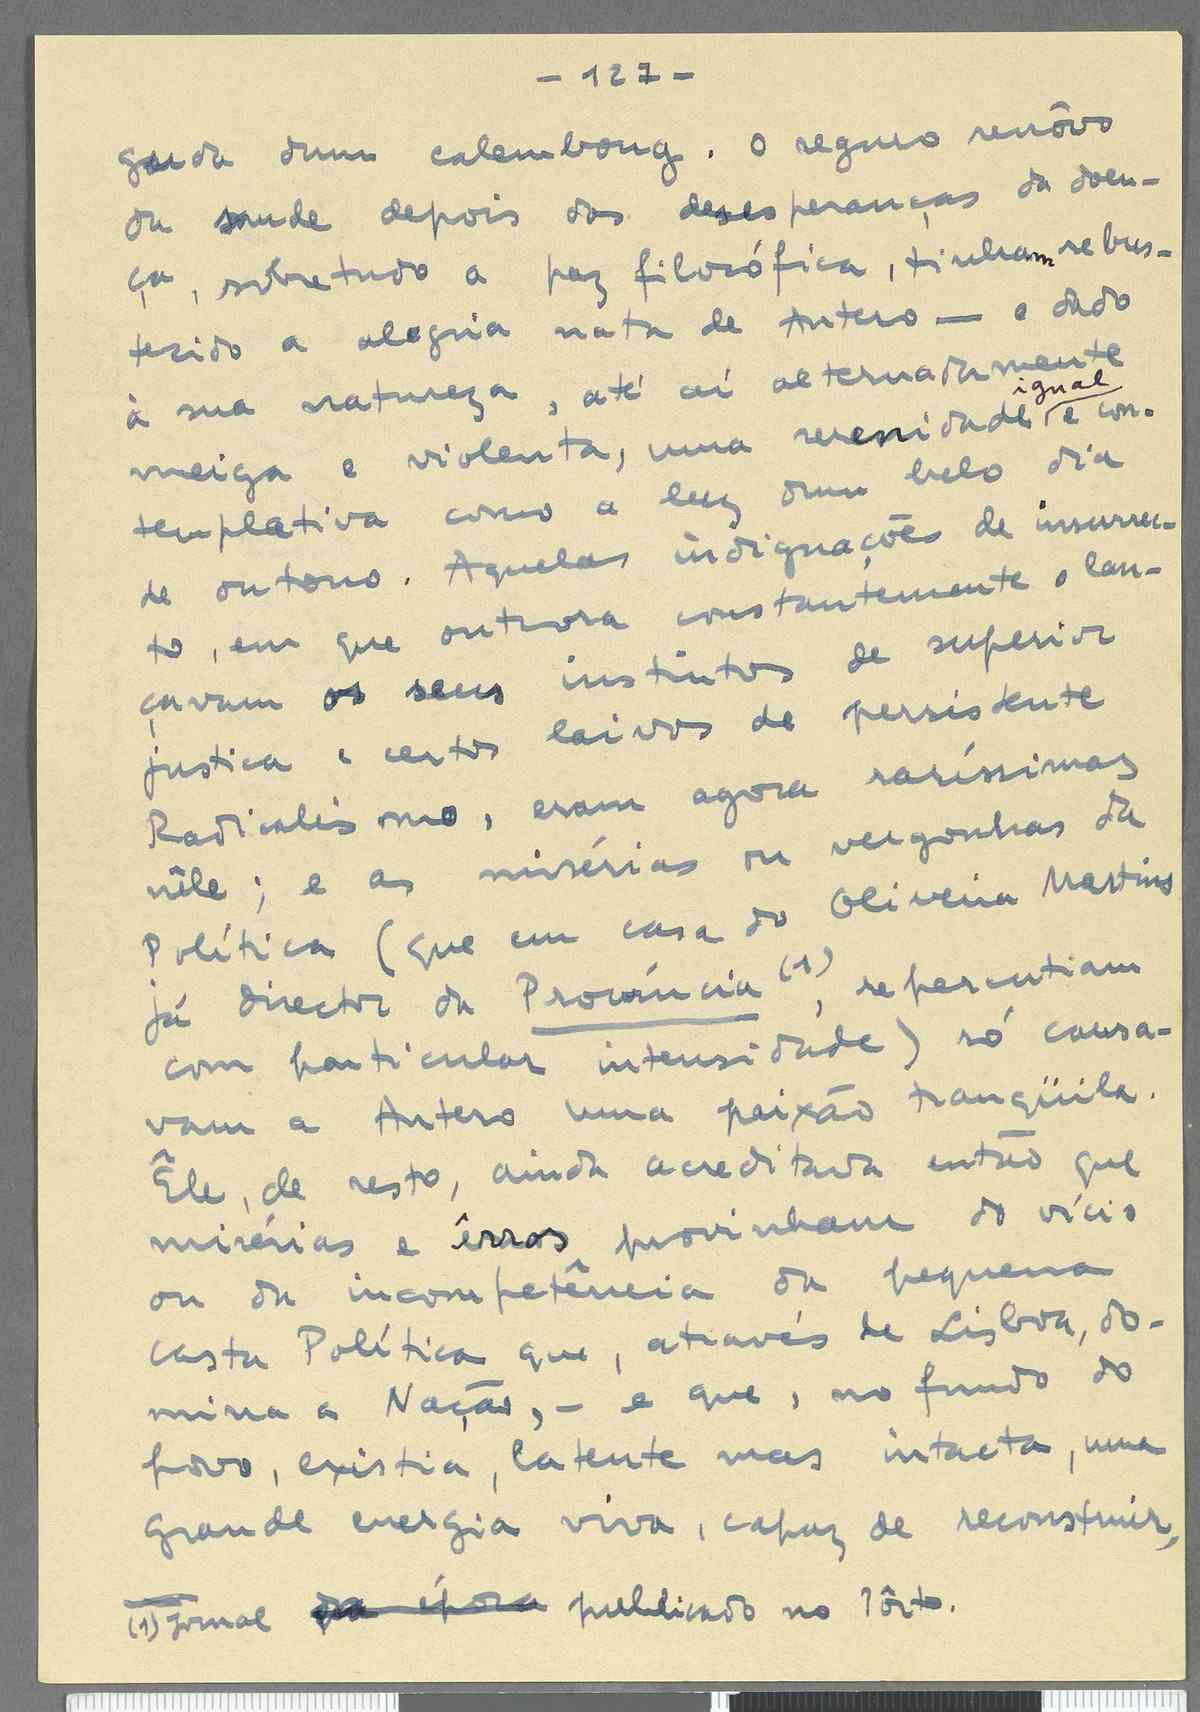 - 127 -
gada dum calembourg. O seguro renôvo
da saude depois das desesperanças da doen-
ça, sobretudo a paz filosófica, tinham robus-
tecido a alegria nata de Antero — e dado
à sua natureza, até aí alternadamente
meiga e violenta, uma serenidade igual e con-
templativa como a luz dum belo dia
de outono. Aquelas indignações de insurrec-
to, em que outrora constantemente o lan-
çavam os seus instintos de superior
justiça e certos laivos de persistente
Radicalismo, eram agora raríssimas
nêle; e as misérias ou vergonhas da
Política (que em casa do Oliveira Martins
já director da Província (1), repercutiam
com particular intensidade) só causa-
vam a Antero uma paixão tranqüila.
Êle, de resto, ainda acreditava então que
misérias e êrros provinham do vício
ou da incompetência da pequena
casta Política que, através de Lisboa, do-
mina a Nação, - e que, no fundo do
povo, existia, latente mas intacta, uma
grande energia viva, capaz de reconstruir,
(1) Jornal da época publicado no Pôrto.